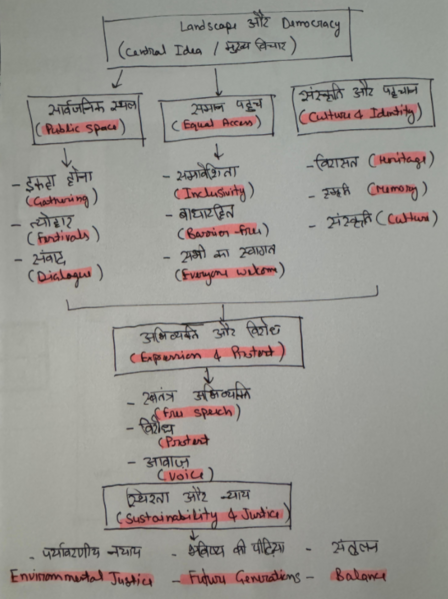 Landscape और Democracy
(Central Idea / मुख्य विचार)
सार्वजनिक स्थल
(Public Space)
समान पहुंच
(Equal Access)
संस्कृति और पहचान
(Culture & Identity)
- इकट्ठा होना
(Gathering)
- त्योहार
(Festivals)
- संवाद
(Dialogue)
- समावेशिता
(Inclusivity)
- बाधारहित
(Barrier-free)
- सभी का स्वागत
(Everyone welcome)
- विरासत (Heritage)
- स्मृति (Memory)
- संस्कृति (Culture)
अभिव्यक्ति और विरोध
(Expression & Protest)
- स्वतंत्र अभिव्यक्ति
(free speech)
- विरोध
(Protest
- आवाज़
(Voice)
स्थिरता और न्याय
(Sustainability & Justice)
- पर्यावरणीय न्याय - भविष्य की पीढ़िया - संतुलन
Environmental Justice - Future Generations - Balance